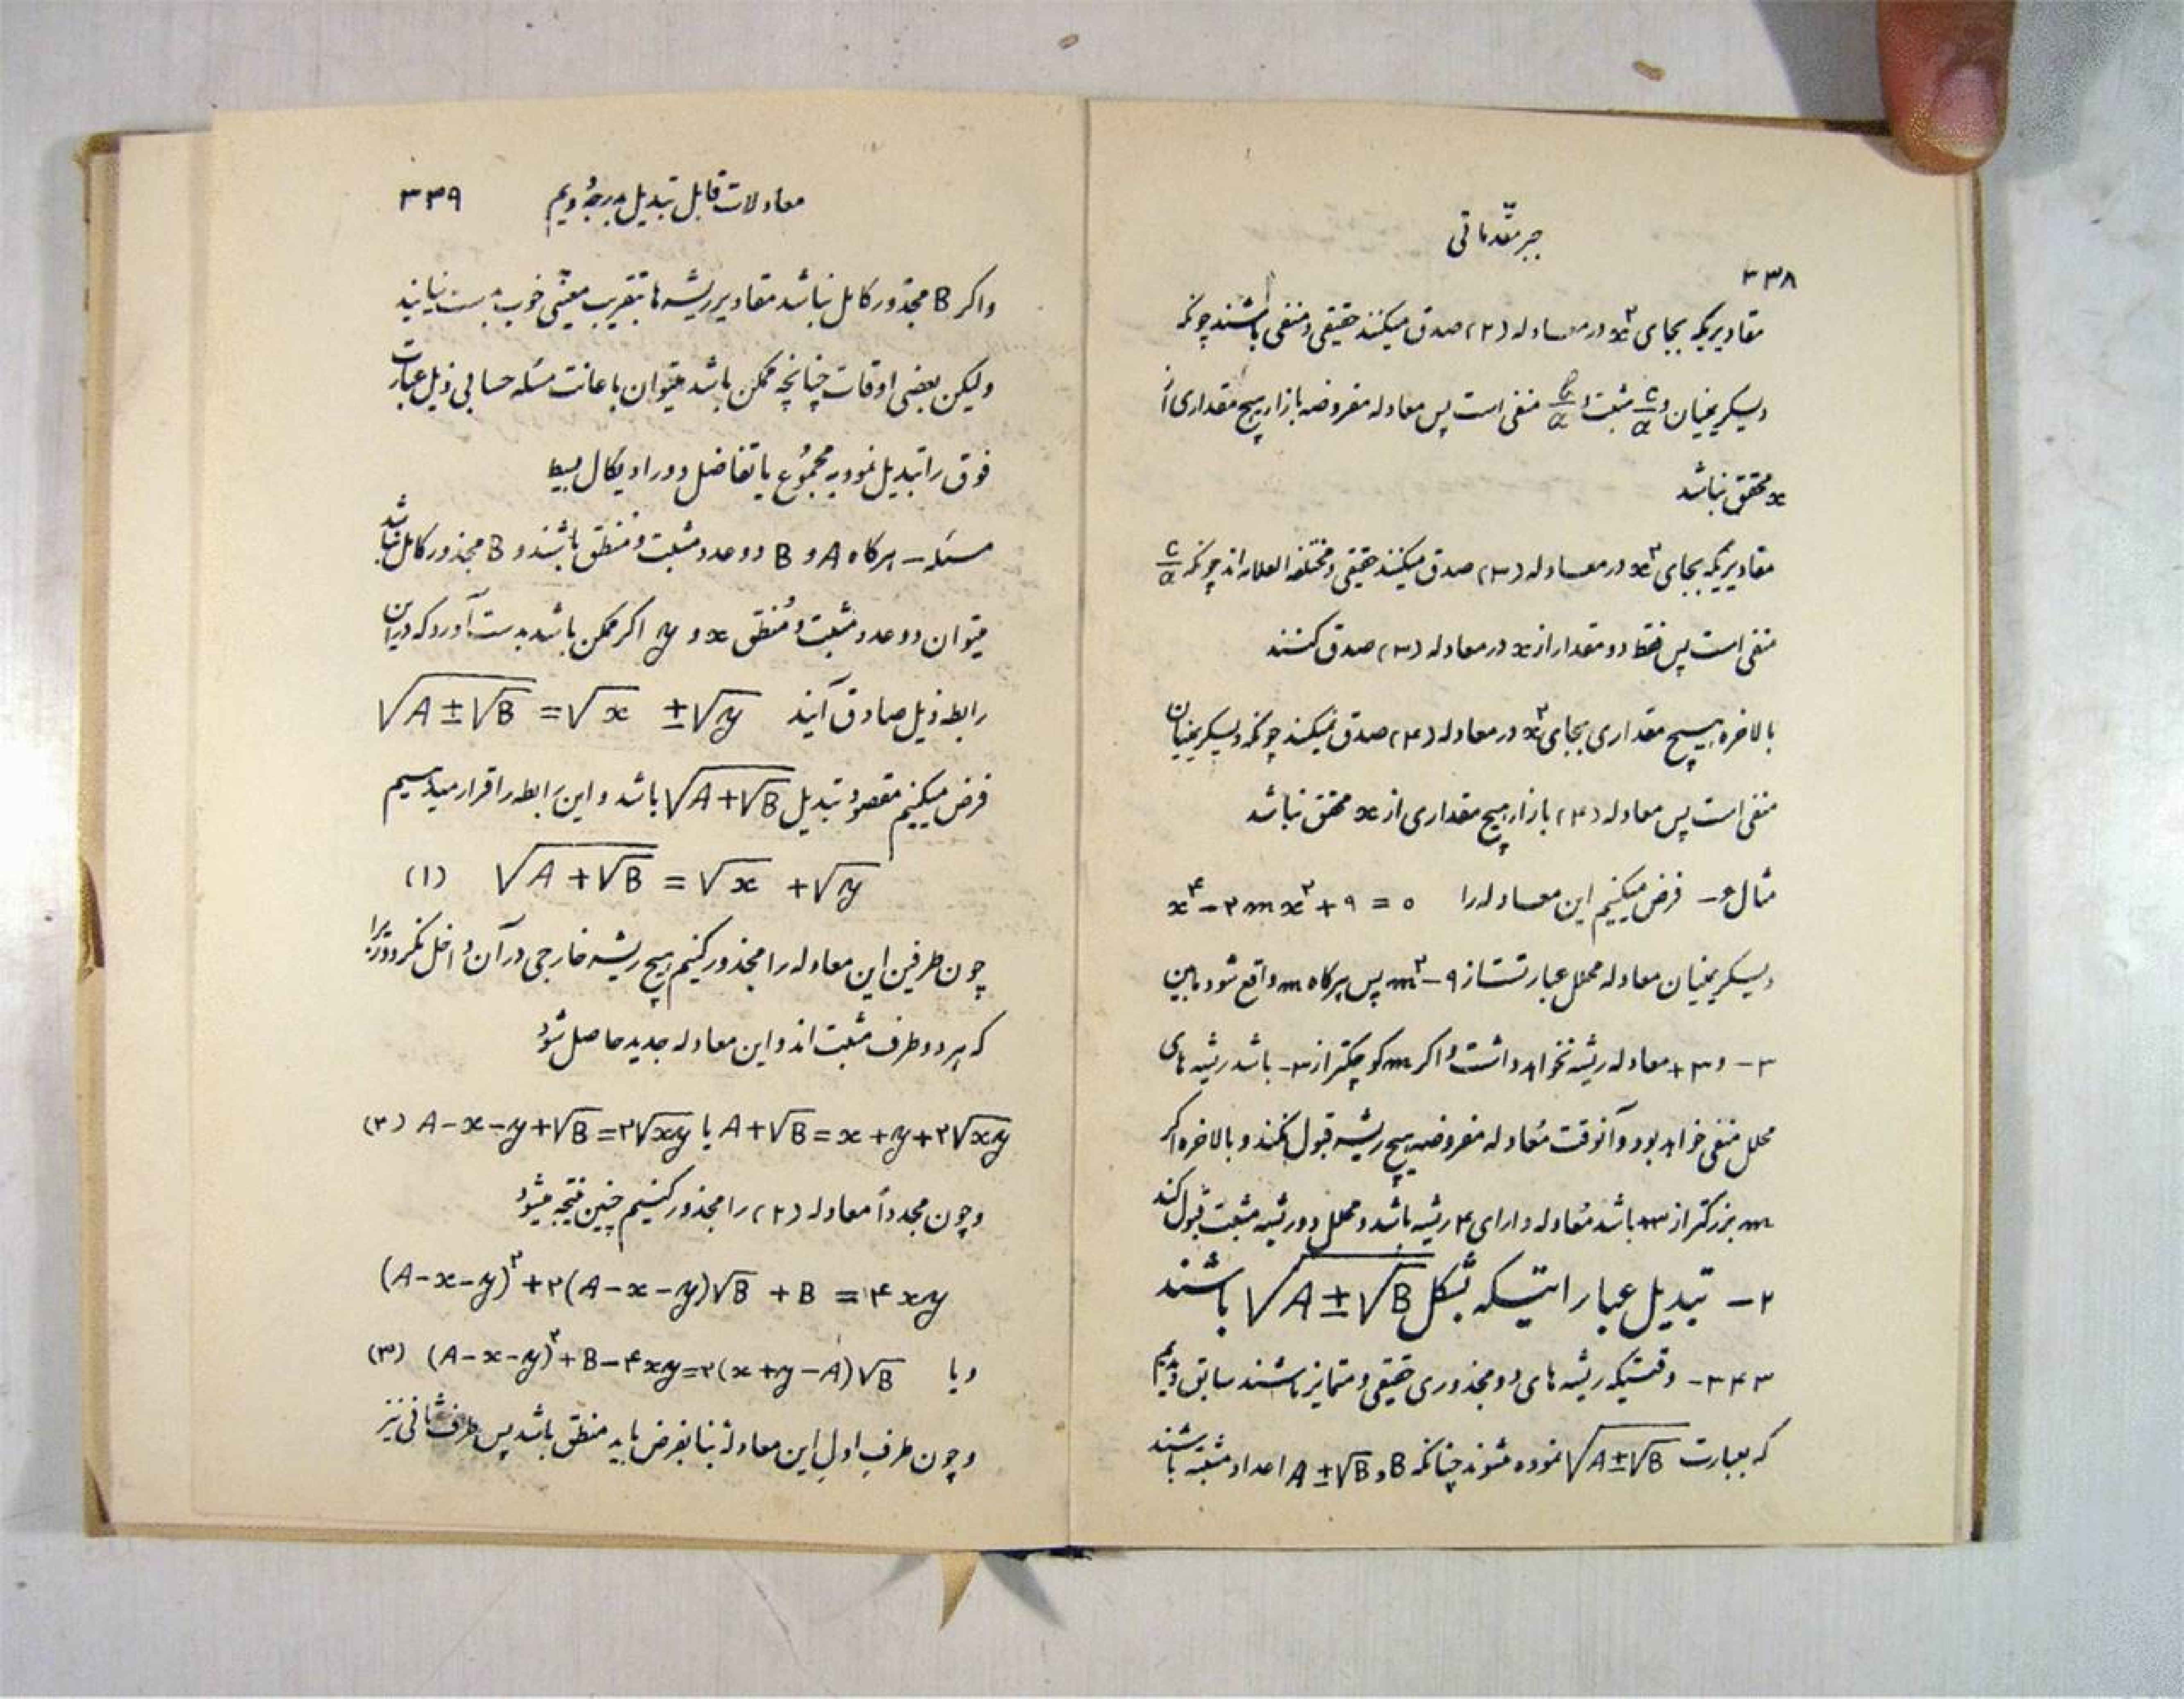 جبر مقدماتی
۳۳۸
مقادیریکه بجای x² در معادله (۲) صدق میکنند حقیقی و منفی باشند چونکه
دیسکریمینان و c/a مثبت و b/a منفی است پس معادله مفروضه بازاء هیچ مقداری از
x محقق نباشد
مقادیریکه بجای x² در معادله (۳) صدق میکنند حقیقی و مختلف العلامه اند چونکه c/a
منفی است پس فقط دو مقدار از x در معادله (۳) صدق کنند
بالاخره هیچ مقداری بجای x² در معادله (۴) صدق نمیکند چونکه دیسکریمینان
منفی است پس معادله (۴) بازاء هیچ مقداری از x محقق نباشد
مثال و- فرض میکنیم این معادله را x⁴ - ۲mx² + ۹ = ۰
دیسکریمینان معادله محلل عبارتست از m² - ۹ پس هرگاه m واقع شود مابین
۳- و ۳+ معادله ریشه نخواهد داشت و اگر m کوچکتر از ۳- باشد ریشه های
محلل منفی خواهد بود و آنوقت معادله مفروضه هیچ ریشه قبول نکند و بالاخره اگر
m بزرگتر از ۳+ باشد معادله دارای ۴ ریشه باشد و محلل دو ریشه مثبت قبول کند
۲- تبدیل عباراتیکه بشکل √(A±√B) باشند
۳۴۳- وقتیکه ریشه های دو مجذوری حقیقی و متمایز باشند سابق دیدیم
که بعبارت √(A±√B) نموده میشوند چنانکه B و A±√B اعداد مثبته باشند
معادلات قابل تبدیل بدرجه دویم ۳۳۹
و اگر B مجذور کامل نباشد مقادیر ریشه ها بتقریب معینی خوب بدست نیایند
ولیکن بعضی اوقات چنانچه ممکن باشد میتوان باعانت مسئله حسابی ذیل عبارت
فوق را تبدیل نمود به مجموع یا تفاضل دو رادیکال بسیط
مسئله - هرگاه A و B دو عدد مثبت و منطق باشند و B مجذور کامل نباشد
میتوان دو عدد مثبت و منطق x و y اگر ممکن باشد بدست آورد که در این
رابطه ذیل صادق آیند √(A±√B) = √x ± √y
فرض میکنیم مقصود تبدیل √(A+√B) باشد و این رابطه را قرار میدهیم
(۱) √(A+√B) = √x + √y
چون طرفین این معادله را مجذور کنیم هیچ ریشه خارجی در آن داخل نگردد زیرا
که هر دو طرف مثبت اند و این معادله جدید حاصل شود
(۲) A-x-y+√B=۲√xy یا A+√B=x+y+۲√xy
و چون مجدداً معادله (۲) را مجذور کنیم چنین نتیجه میشود
(A-x-y)² + ۲(A-x-y)√B + B = ۴xy
و یا (A-x-y)² + B - ۴xy = ۲(x+y-A)√B (۳)
و چون طرف اول این معادله بنا بفرض باید منطق باشد پس طرف ثانی نیز